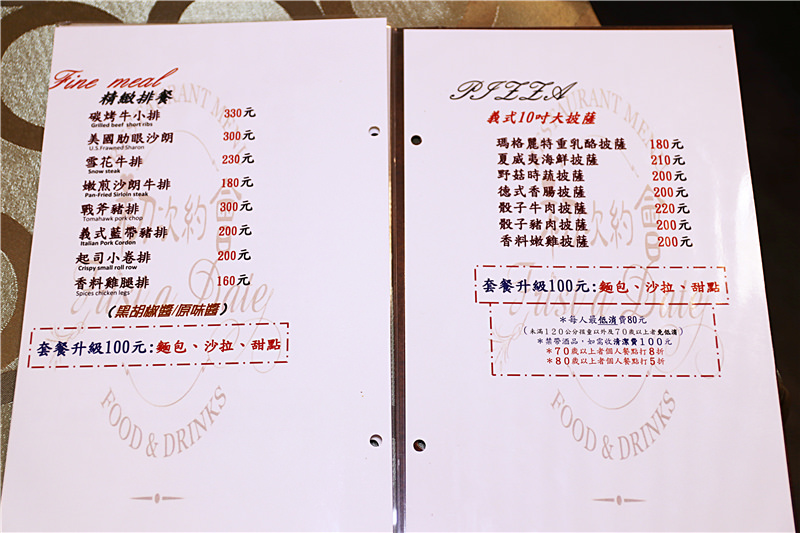 Fine meal
精緻排餐
碳烤牛小排 330元
Grilled beef short ribs
美國肋眼沙朗 300元
U.S.Frawned Sharon
雪花牛排 230元
Snow steak
嫩煎沙朗牛排 180元
Pan-Fried Sirloin steak
戰斧豬排 300元
Tomahawk pork chop
義式藍帶豬排 200元
Italian Pork Cordon
起司小卷排 200元
Crispy small roll row
香料雞腿排 160元
Spices chicken legs
(黑胡椒醬/原味醬)
套餐升級100元:麵包、沙拉、甜點
初次約會
Just a Date
FOOD & DRINKS
PIZZA
RESTAURANT MENU
義式10吋大披薩
瑪格麗特重乳酪披薩 180元
夏威夷海鮮披薩 210元
野菇時蔬披薩 200元
德式香腸披薩 200元
骰子牛肉披薩 220元
骰子豬肉披薩 200元
香料嫩雞披薩 200元
套餐升級100元:麵包、沙拉、甜點
*每人最低消費80元
(未滿120公分孩童以外及70歲以上者免低消)
*禁帶酒品，如需收清潔費100元
*70歲以上者個人餐點打8折
*80歲以上者個人餐點打5折
初次約會
Just a Date
FOOD & DRINKS